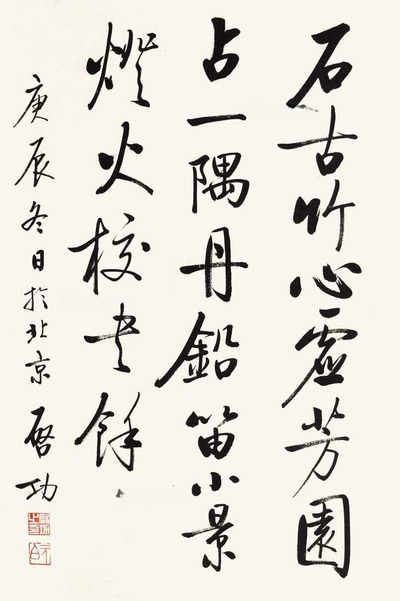 石古竹心虚芳園
占一隅丹鉛留小景
燈火校書餘
庚辰冬日於北京 啓功